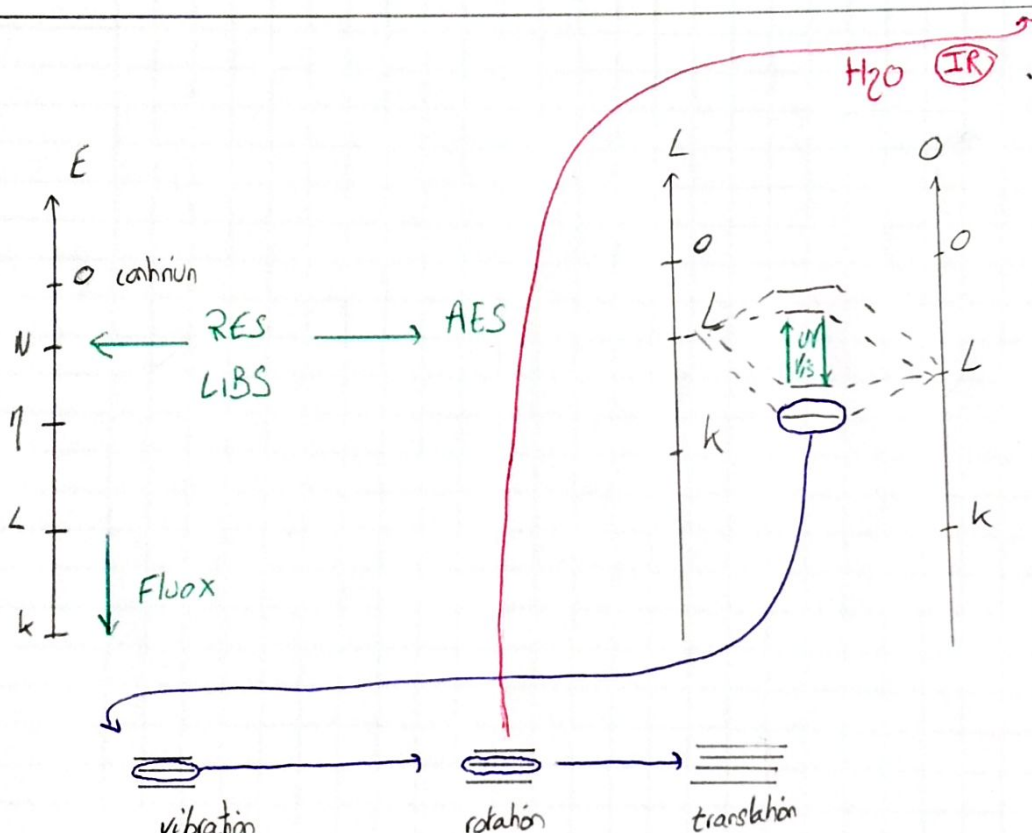 H2O IR
E
0 continun
N
RES
AES
LIBS
η
L
Fluox
k
L
0
L
k
UV
Vis
O
0
L
k
vibration
rotation
translation